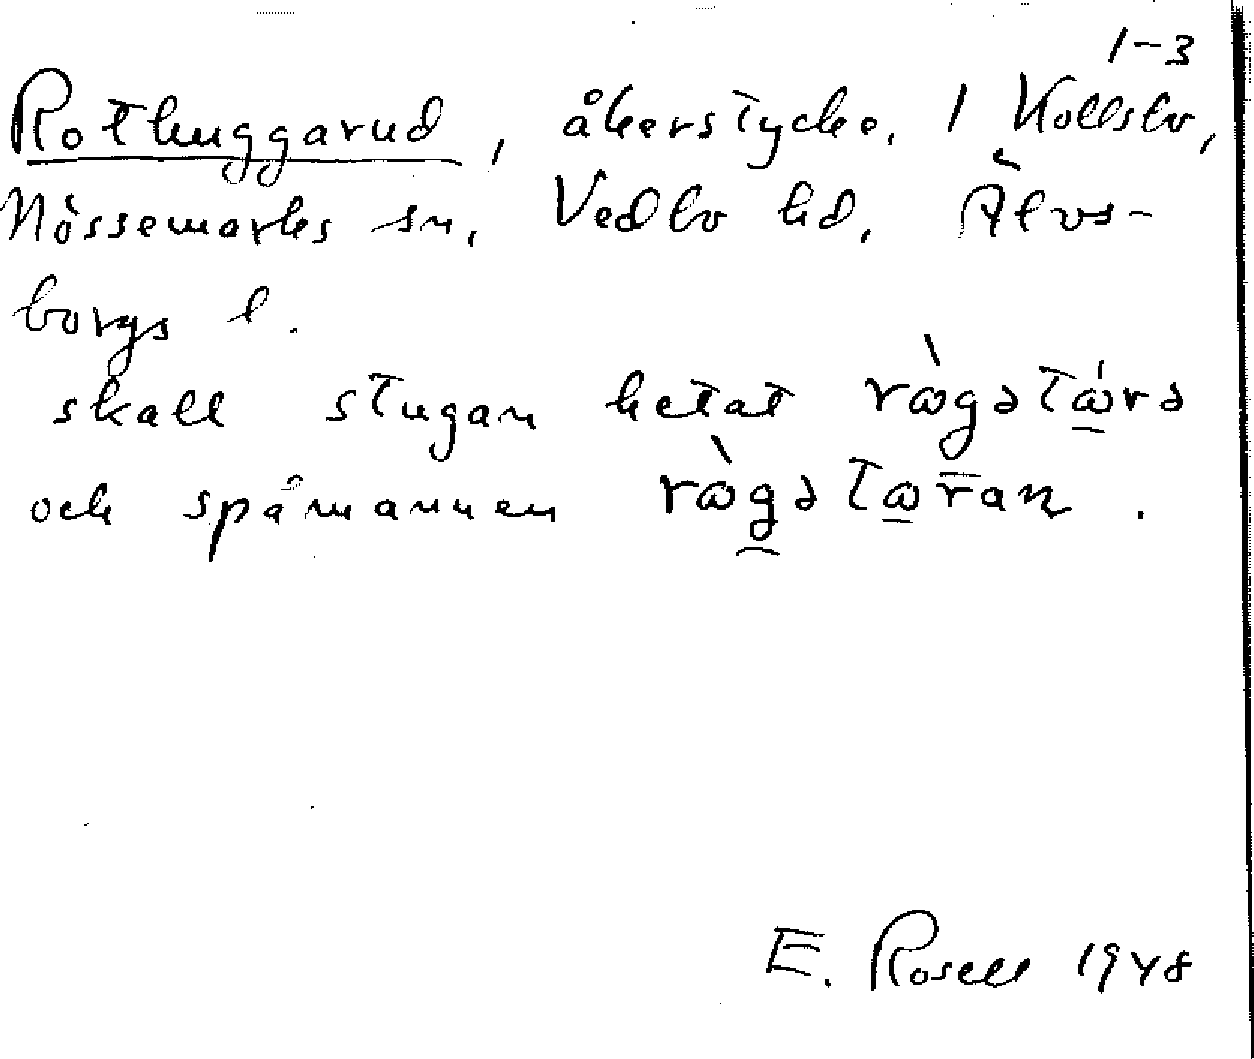 1-3
Rothuggarud, åkerstycke, 1 Kollsbo,
Nössemarks sn, Vedbo hd, Älvs-
borgs l.
skall stugan hetat
och spåmannen
E. Rosell 1948